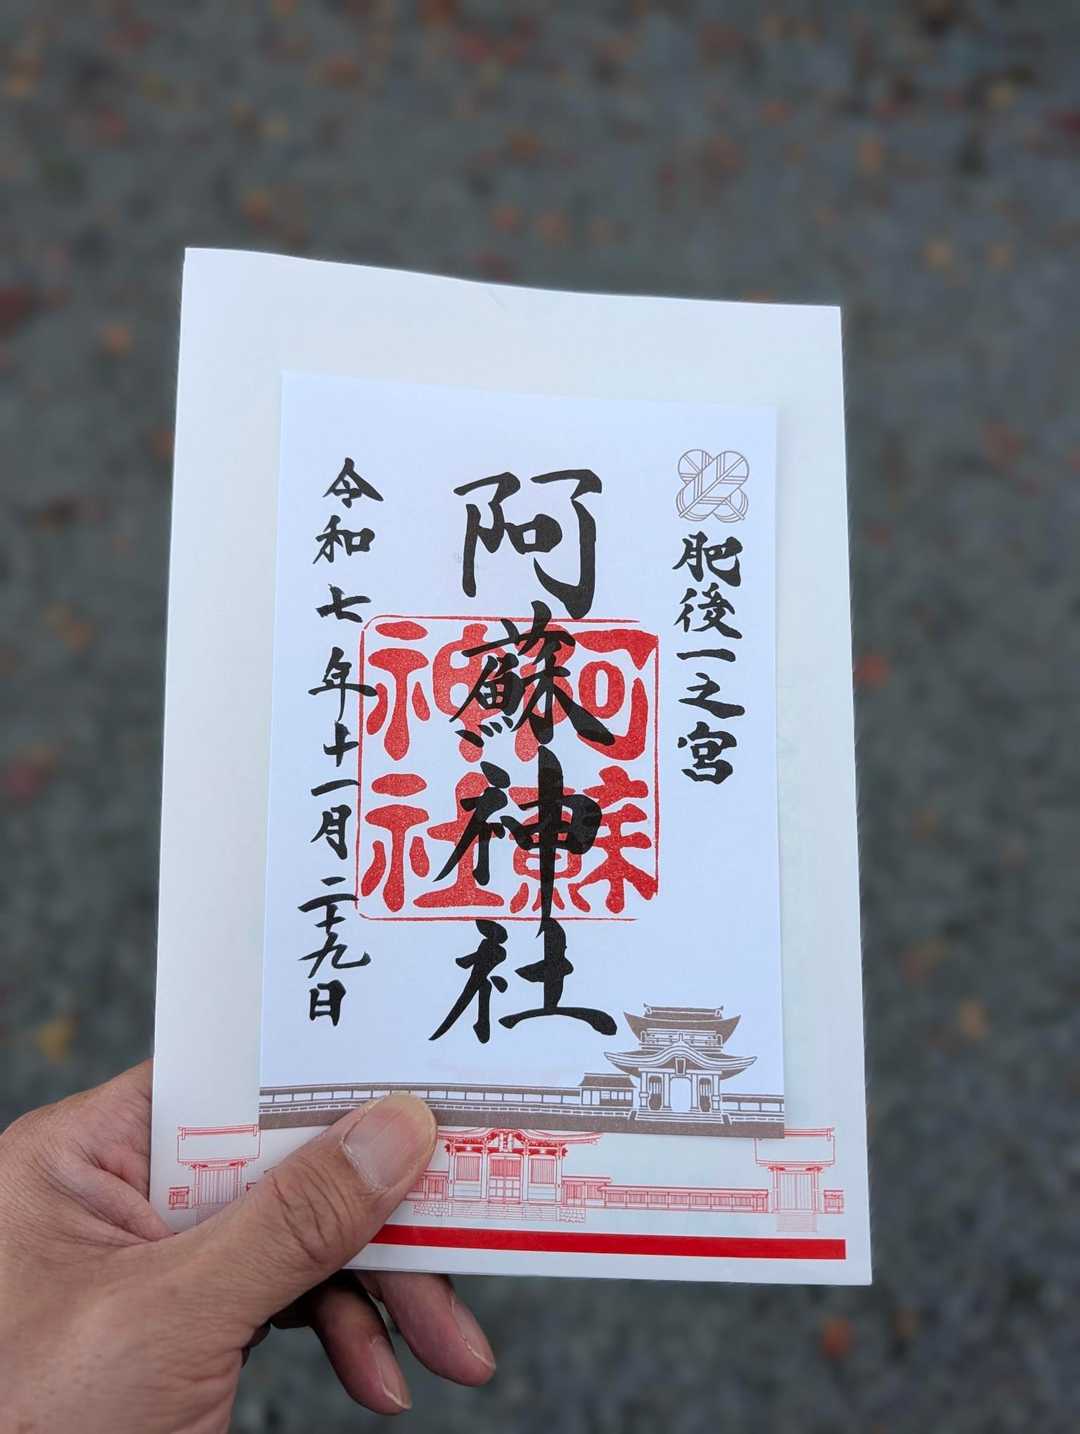 肥後一之宮
阿蘇神社
阿蘇
神社
令和七年十一月二十九日